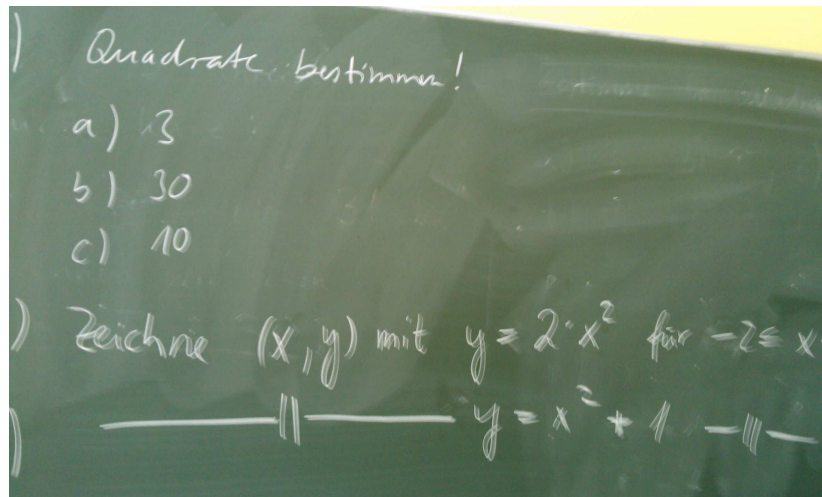 ) Quadrate bestimmen!
a) 3
b) 30
c) 10
) Zeichne (x,y) mit y = 2·x² für -2 ≤ x
) ———||——— y = x² + 1 —||—